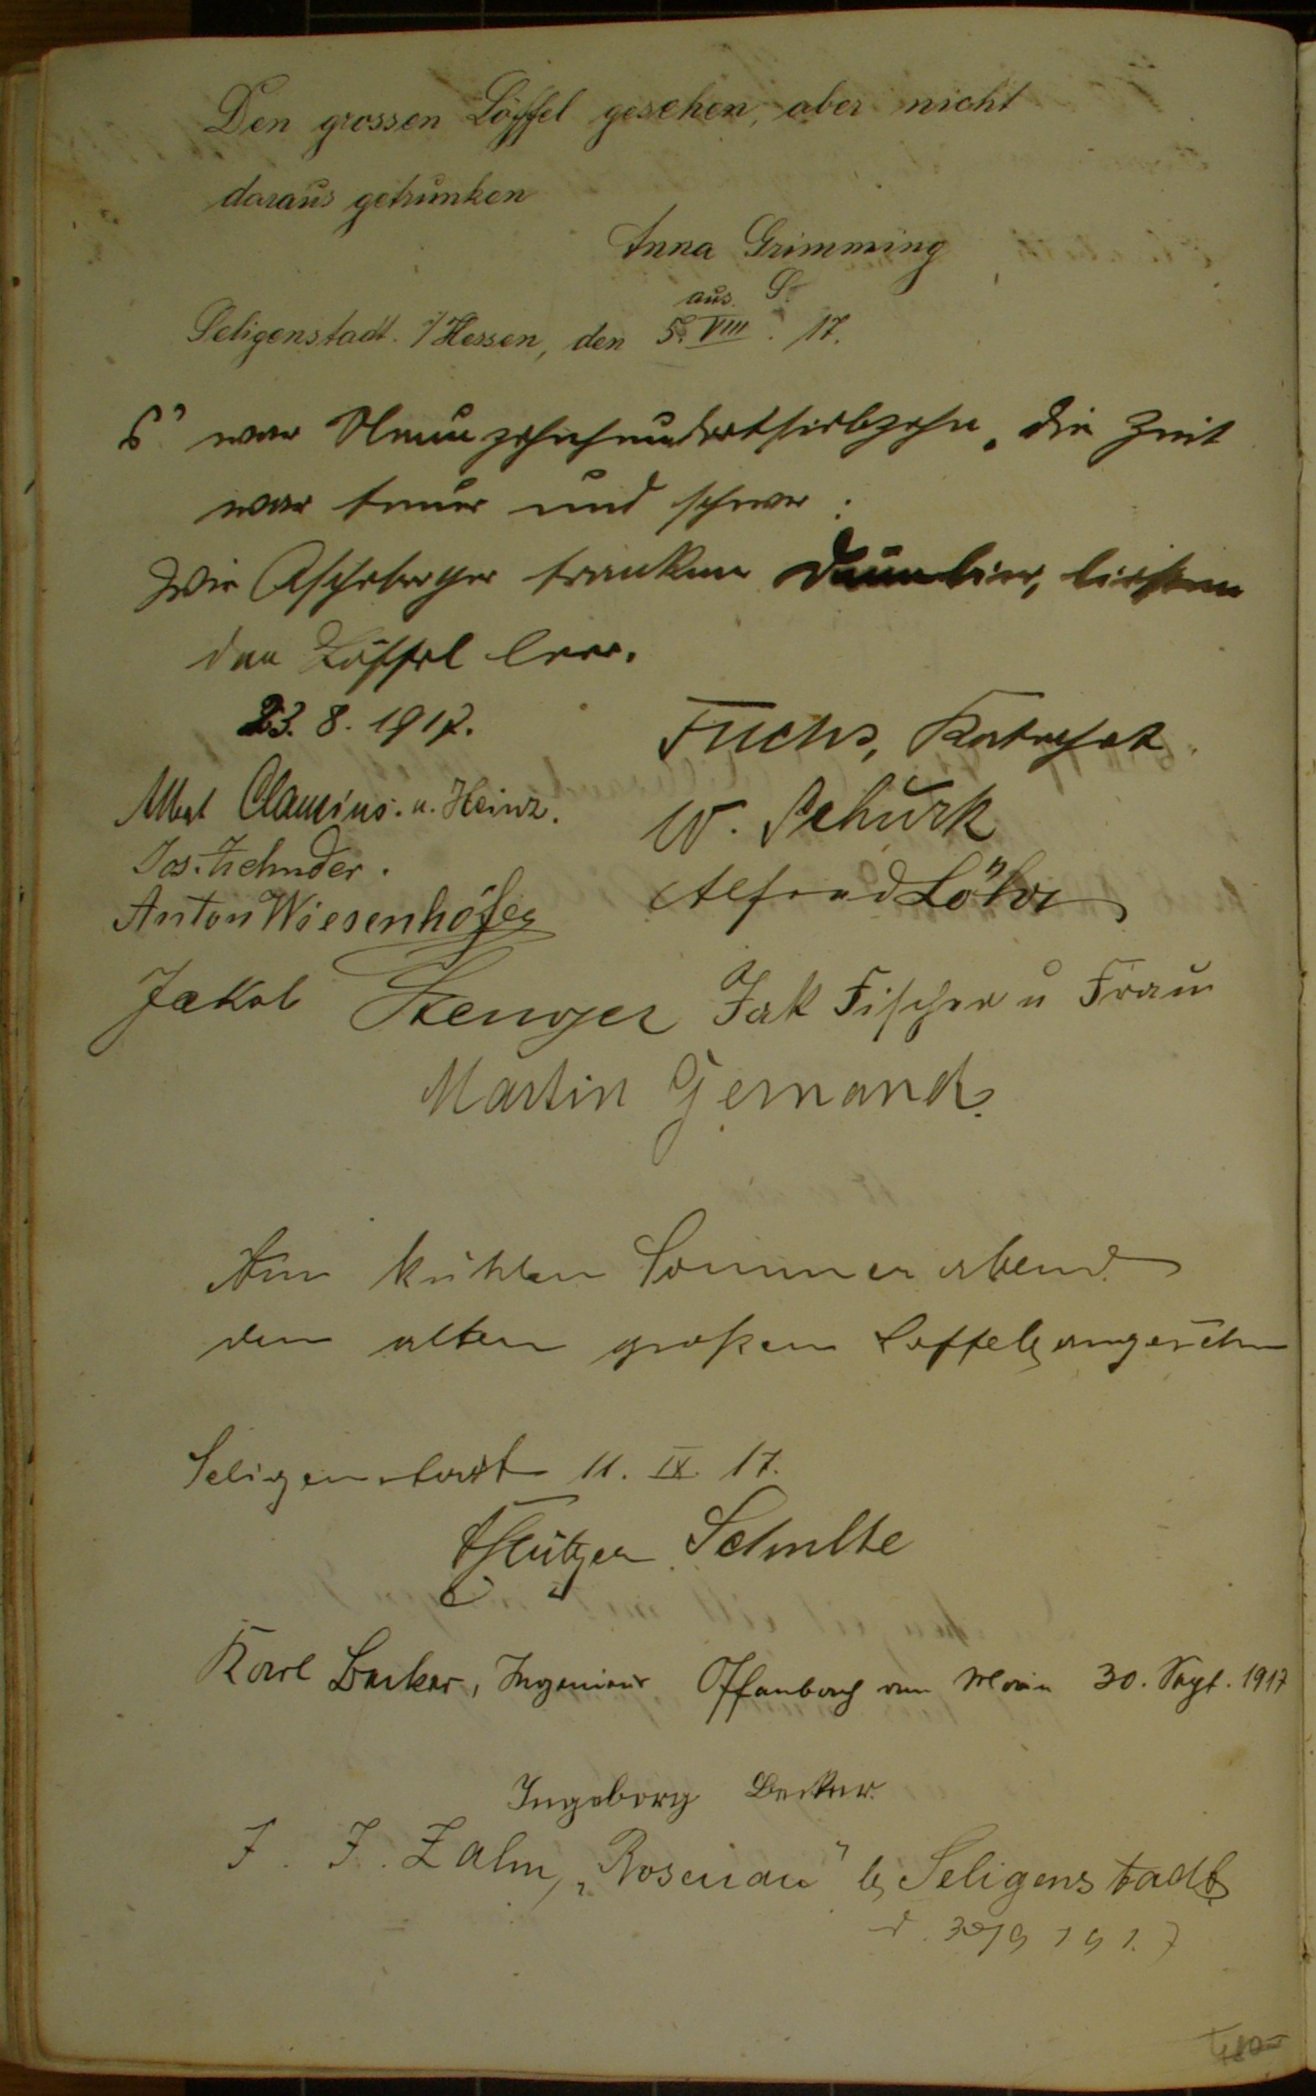 Den grossen Löffel gesehen, aber nicht
daraus getrunken
Anna Grimming
aus S.
Seligenstadt. i/Hessen, den 5. VIII. 17.
S' war Neunzehnhundertsiebzehn, die Zeit
war teuer und schwer:
Wir Ascheberger tranken Dünnbier, ließen
den Löffel leer.
23. 8. 1917.
Fuchs,
Albert Clausius. u. Heinz.
W. Schürk
Jos. Zehnder.
Alfred Löhr
Anton Wiesenhöfer
Jakob Stenger Jak Fischer u Frau
Martin Gernand.
Am kühlen Sommerabend
den alten großen Löffel angesehn
Seligenstadt 11. IX. 17.
Schulte
Karl Becker, Ingenieur Offenbach am Main 30. Sept. 1917
Ingeborg Becker.
J. J. Zahn, „Rosenau" b Seligenstadt
d. 30/9 1917